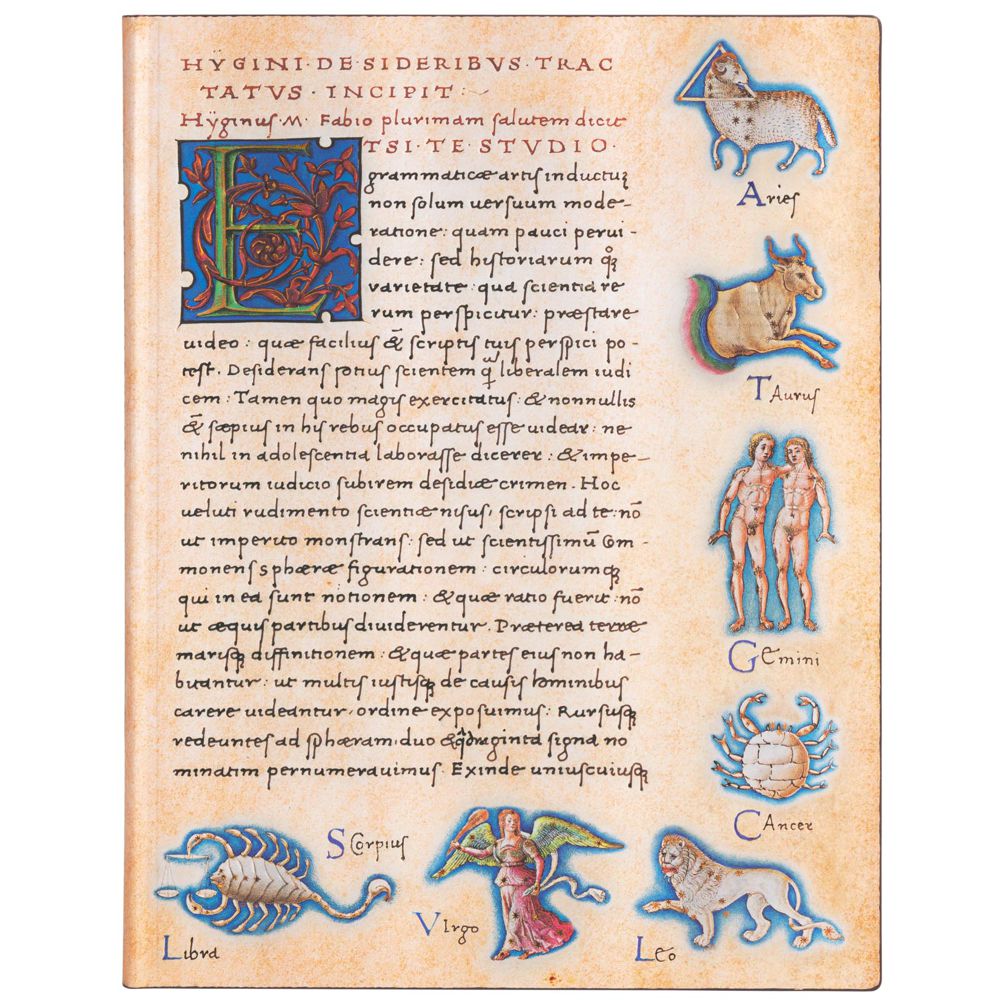 HŸGINI·DE·SIDERIBVS·TRAC
TATVS·INCIPIT:
Hÿginus·M· Fabio plurimam salutem dicit
ETSI·TE·STVDIO·
grammaticæ artis inductuʒ
non solum uersuum mode-
ratione: quam pauci perui-
dere: sed historiarum qꝫ
varietate: qua scientia re
rum perspicitur: præstare
uideo: quæ facilius & scriptis tuis perspici po-
test. Desiderans potius scientem liberalem iudi
cem: Tamen quo magis exercitatus: & nonnullis
& sæpius in his rebus occupatus esse uidear: ne
nihil in adolescentia laborasse dicerer: & impe-
ritorum iudicio subirem desidiæ crimen. Hoc
ueluti rudimento scientiæ nisus, scripsi ad te: nō
ut imperito monstrans: sed ut scientissimū com-
monens sphæræ figurationem: circulorumqꝫ
qui in ea sunt notionem: & quæ ratio fuerit: nō
ut æquis partibus diuiderentur. Præterea terræ
marisqꝫ diffinitionem: & quæ partes eius non ha-
bitantur: ut multis iustisqꝫ de causis hominibus
carere uideantur, ordine exposuimus: Rursusqꝫ
redeuntes ad sphæram, duo & qdraginta signa no
minatim pernumerauimus. Exinde uniuscuiusqꝫ
Aries
Taurus
Gemini
Cancer
Leo
Virgo
Scorpius
Libra